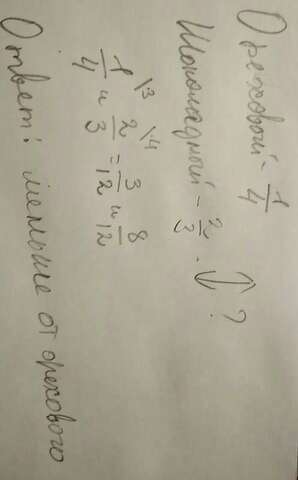 Ореховый - 1/4
Шоколадный - 2/3. ↕ ?
1/4 \3 и 2/3 \4 = 3/12 и 8/12
Ответ: меньше от орехового